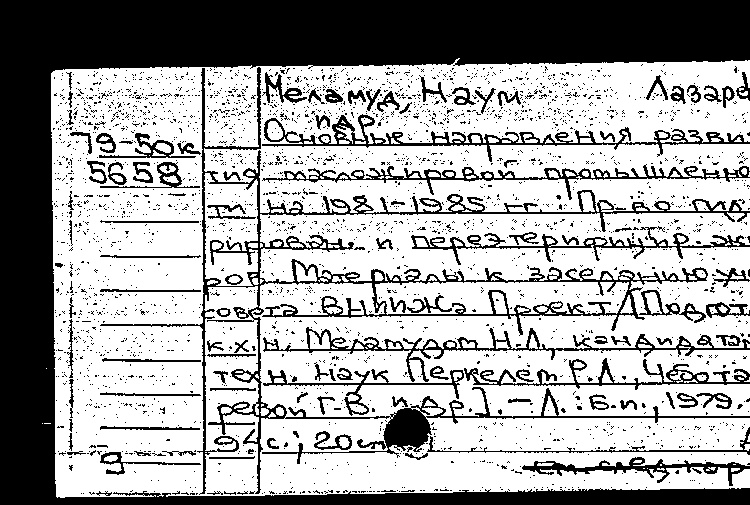 Меламуд, Наум Лазаре
и др.
79-50к Основные направления разви
5658 тия масложировой промышленно
ти на 1981-1985 гг. : Пр-во гид
рирован. и переэтерифицир. жи
ров. Материалы к заседанию уч
совета ВНИИЖа. Проект/[Подгот.
к.х.н. Меламудом Н.Л., кандидатам
техн. наук Перкелем Р.Л., Чебота
ревой Г.В. и др.]. – Л. : Б.и., 1979. –
94 с.; 20 см
9 см. след. кар